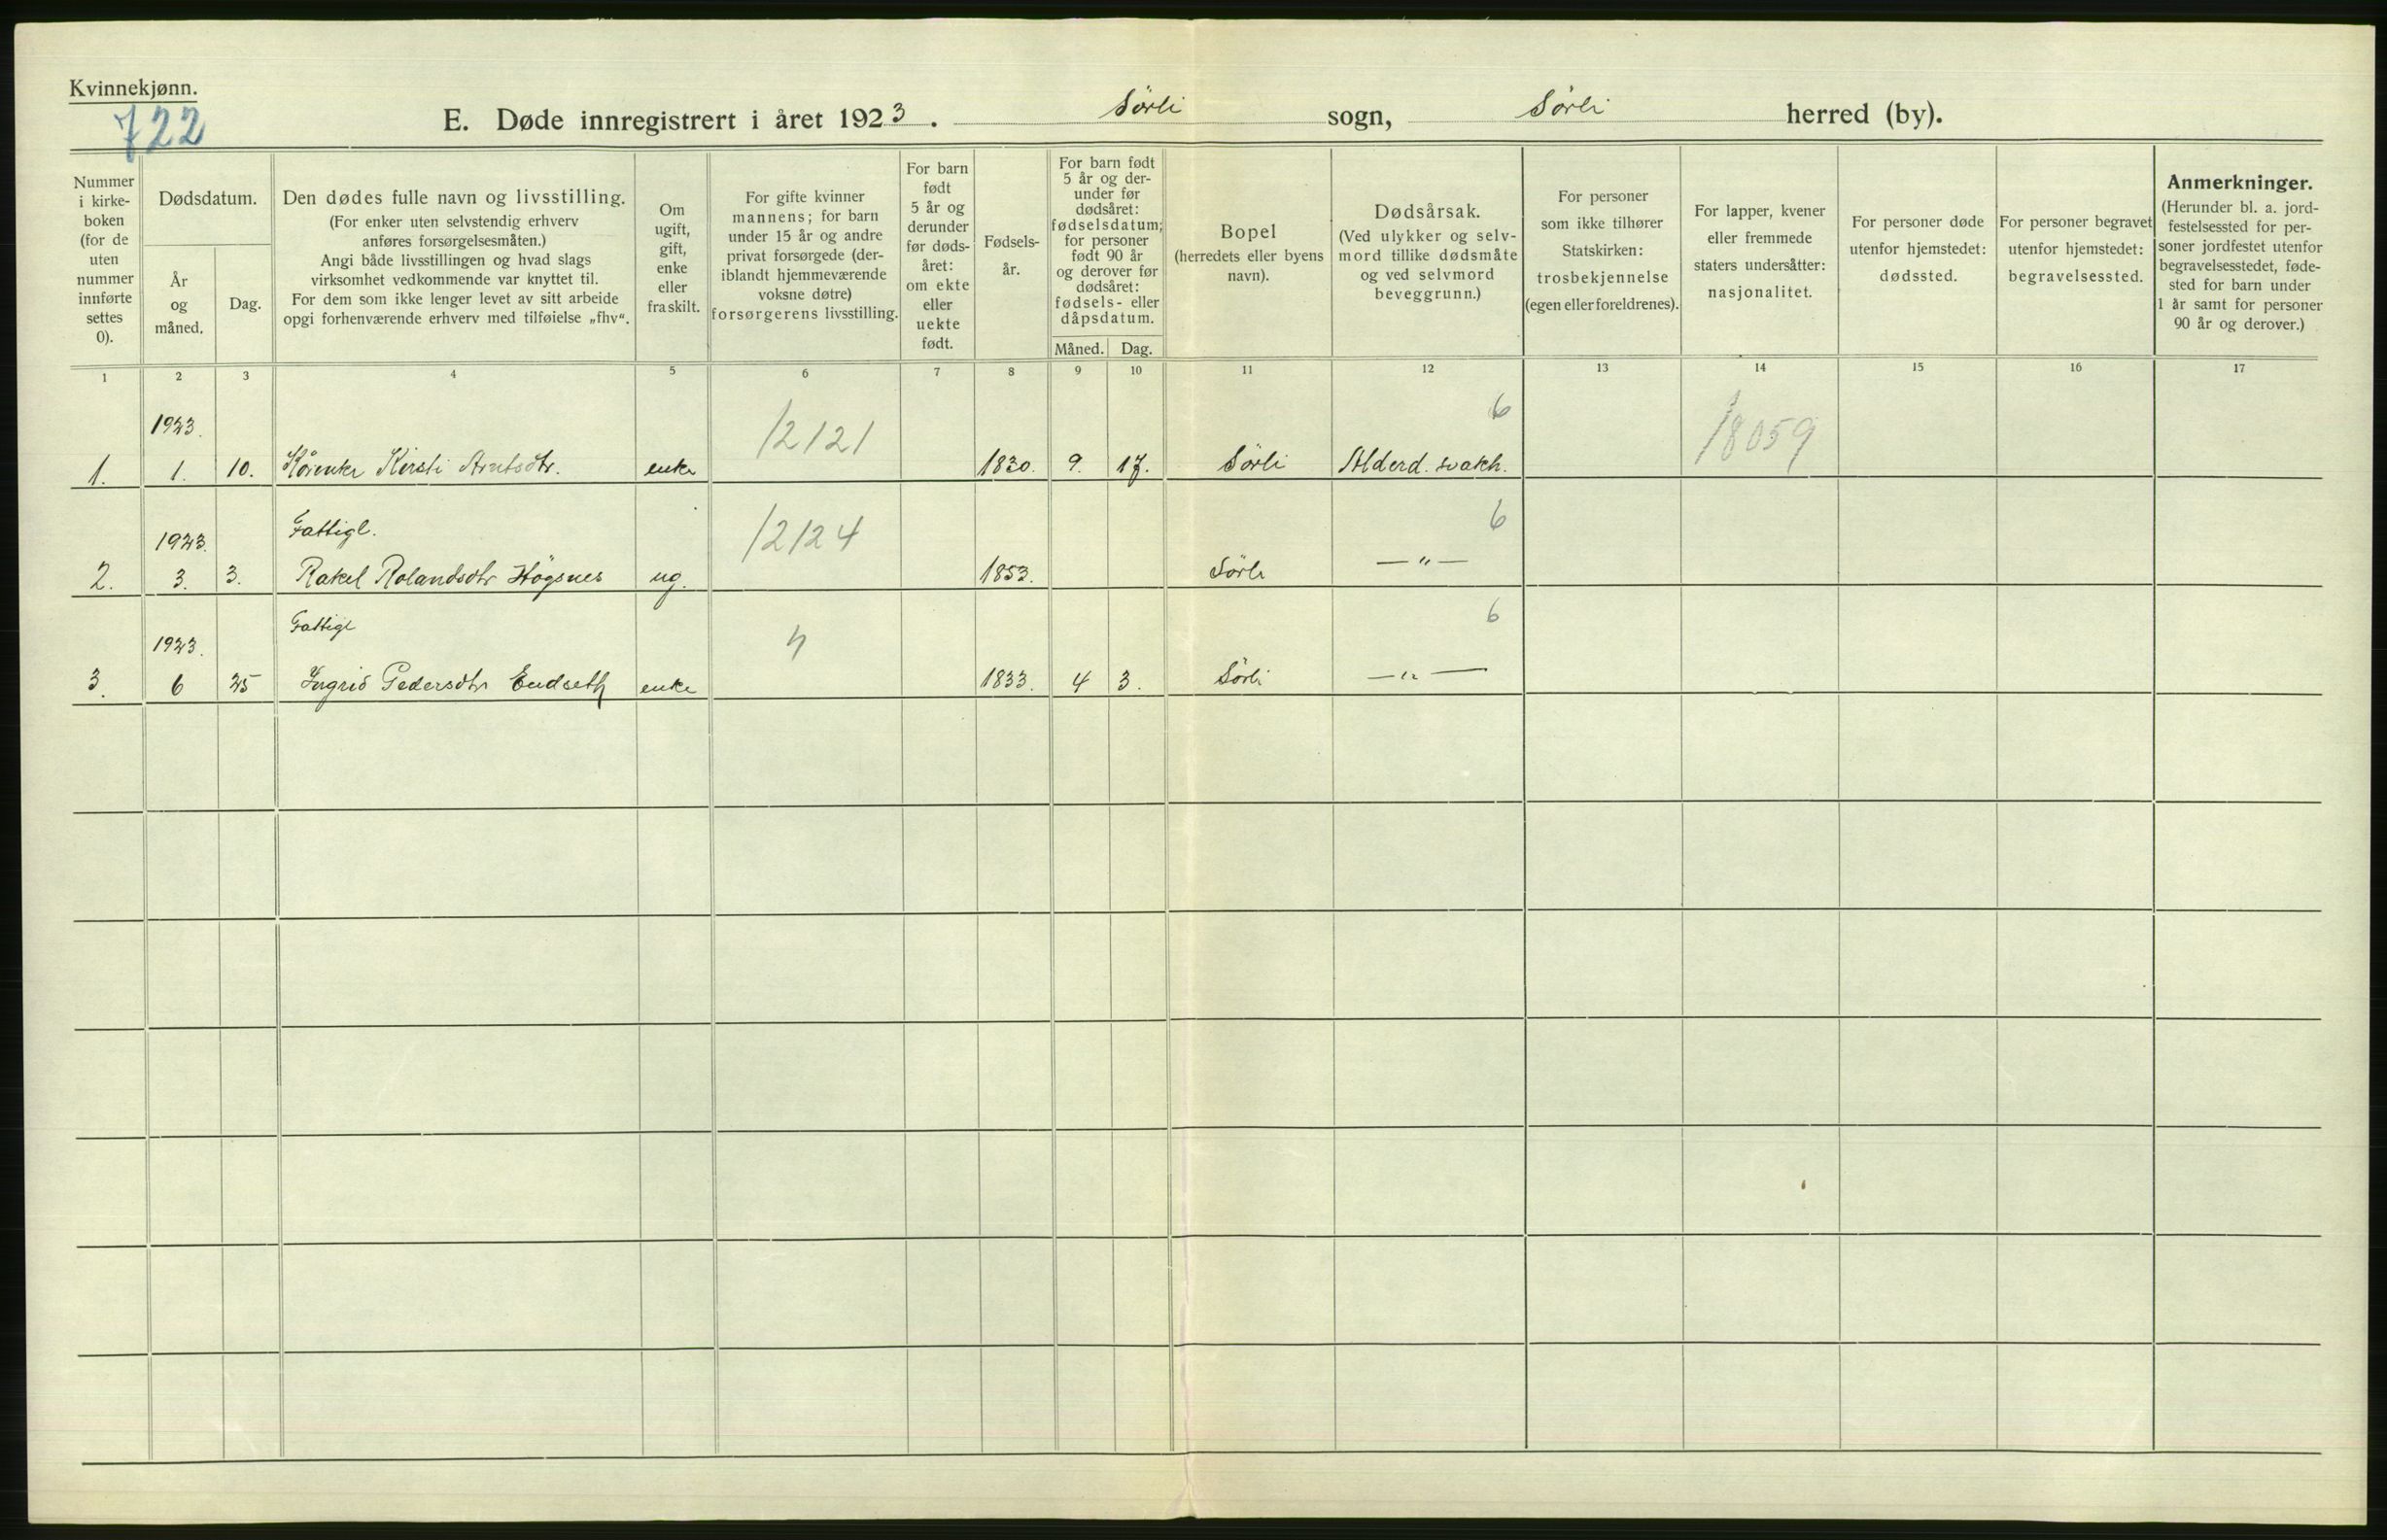 Kvinnekjønn.
722
E. Døde innregistrert i året 1923. Sörli sogn, Sörli herred (by).
Nummer i kirke-boken (for de uten nummer innførte settes 0).
Dødsdatum.
År og måned.
Dag.
Den dødes fulle navn og livsstilling.
(For enker uten selvstendig erhverv anføres forsørgelsesmåten.)
Angi både livsstillingen og hvad slags virksomhet vedkommende var knyttet til.
For dem som ikke lenger levet av sitt arbeide opgi forhenværende erhverv med tilføielse „fhv“.
Om ugift, gift, enke eller fraskilt.
For gifte kvinner mannens; for barn under 15 år og andre privat forsørgede (der-iblandt hjemmeværende voksne døtre) forsørgerens livsstilling.
For barn født 5 år og derunder før døds-året: om ekte eller uekte født.
Fødsels-år.
For barn født 5 år og der-under før dødsåret: fødselsdatum; for personer født 90 år og derover før dødsåret: fødsels- eller dåpsdatum.
Måned.
Dag.
Bopel (herredets eller byens navn).
Dødsårsak.
(Ved ulykker og selv-mord tillike dødsmåte og ved selvmord beveggrunn.)
For personer som ikke tilhører Statskirken: trosbekjennelse (egen eller foreldrenes).
For lapper, kvener eller fremmede staters undersåtter: nasjonalitet.
For personer døde utenfor hjemstedet: dødssted.
For personer begravet utenfor hjemstedet: begravelsessted.
Anmerkninger.
(Herunder bl. a. jord-festelsessted for per-soner jordfestet utenfor begravelsesstedet, føde-sted for barn under 1 år samt for personer 90 år og derover.)
1 2 3 4 5 6 7 8 9 10 11 12 13 14 15 16 17
1923. 12121 6 18059
1. 1. 10. Kårenke Kirsti Arntsdtr. enke 1830. 9. 17. Sörli Alderd. svakh.
1923. Fattigl. 12124 6
2. 3. 3. Rakel Rolandsdtr Högsnes ug. 1853. Sörli — „ —
1923. Fattigl 6
3. 6 25 Ingrid Pedersdtr Endseth enke 1833. 4 3. Sörli — „ —